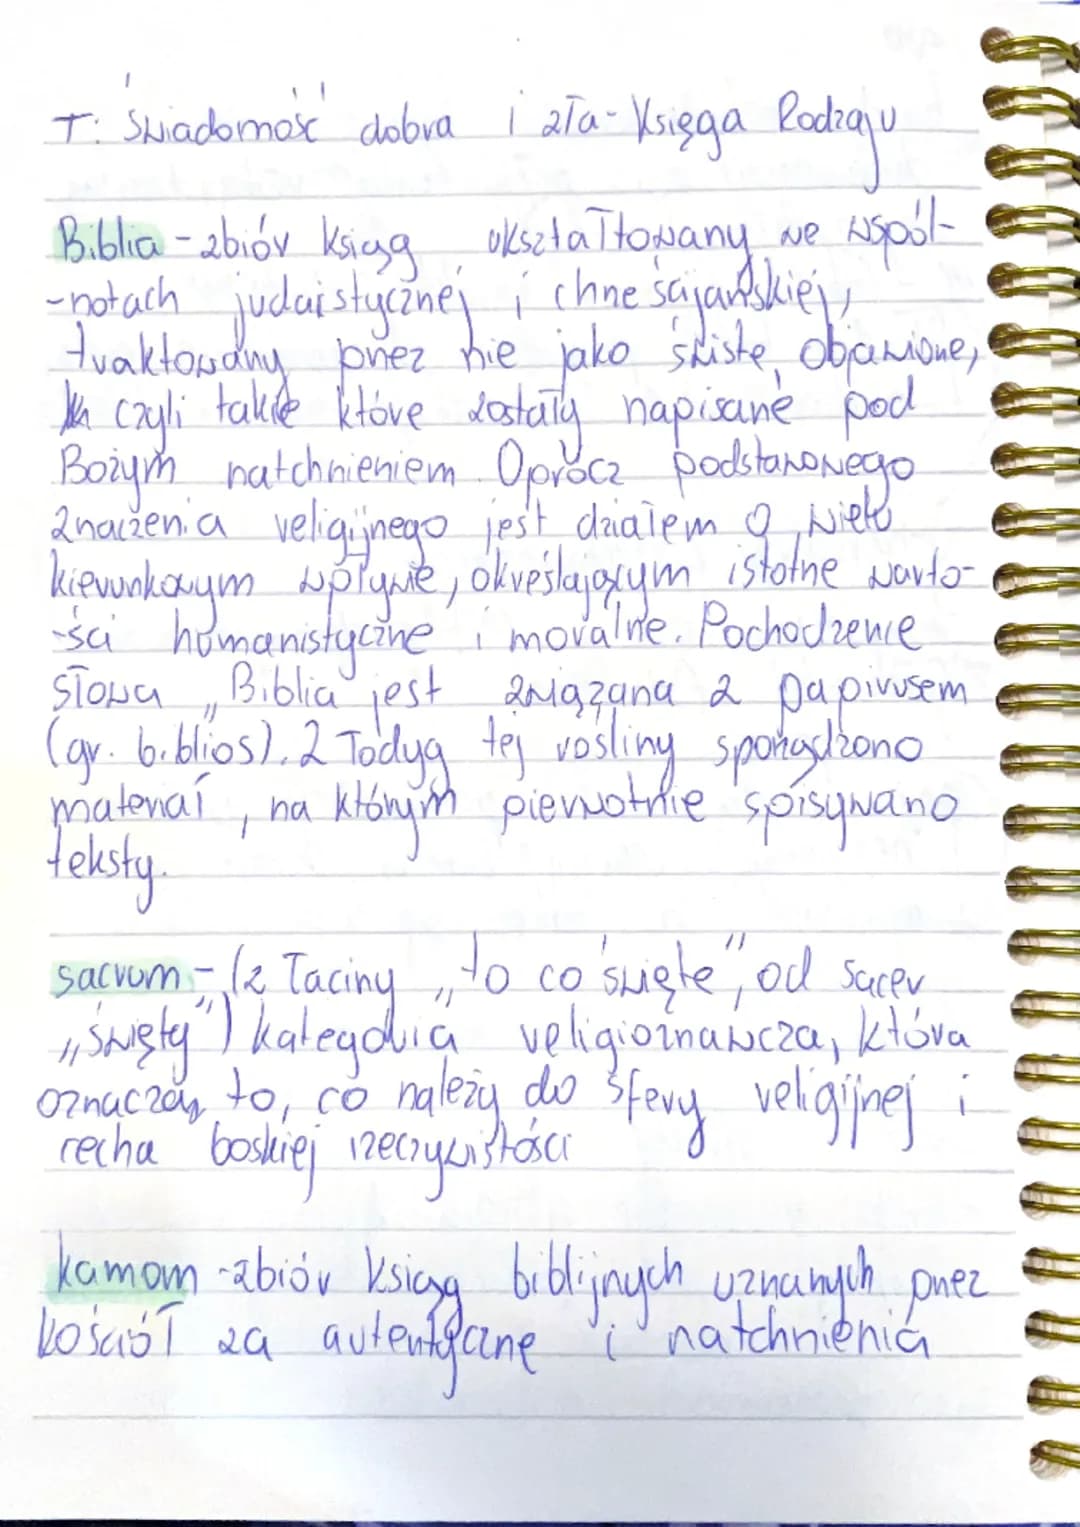 T: Świadomość dobra i zła - Księga Rodzaju
Biblia - zbiór ksiąg ukształtowany we wspól-
-notach judaistycznej i chrześcijańskiej,
traktowany przez nie jako święte, objawione,
czyli takie które zostały napisane pod
Bożym natchnieniem. Oprócz podstawowego
znaczenia religijnego jest działem o wielu
kierunkowym wpływie, określającym istotne warto-
-ści humanistyczne i moralne. Pochodzenie
słowa „Biblia jest związana z papirusem
(gr. biblios). Z łodyg tej rośliny sporządzono
materiał, na którym pierwotnie spisywano
teksty.
sacrum - (z łaciny „to co święte", od sacer
„święty") kategoria religioznawcza, która
oznacza to, co należy do sfery religijnej i
recha boskiej rzeczywistości
kamom - zbiór ksiąg biblijnych uznanych przez
kościół za autentyczne i natchnienia